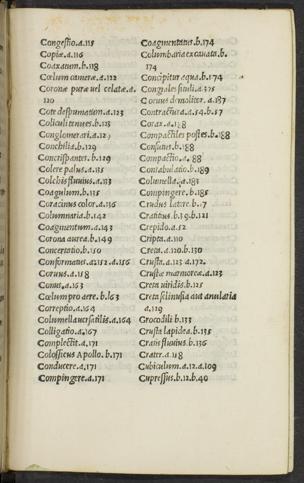 Congestio.a.115
Copiæ.a.116
Coaxatum.b.118
Cœlum cameræ.a.122
Coronæ puræ uel celatæ.a.
120
Cote despumatum.a.123
Coliculi tenues.b.115
Conglomerari.a.123
Conchilia.b.129
Concrispantes.b.129
Colere palus.a.135
Colchis fluuius.a.113
Coagulum.b.115
Coracinus color.a.116
Columnaria.b.142
Coagmentum.a.143
Corona aurea.b.149
Concertatio.b.150
Conformatus.a.152.a.156
Coruus.a.158
Conus.a.163
Cœlum pro aere.b.163
Correptio.a.164
Columella uersatilis.a.164
Colligatio.a.167
Complectit.a.171
Colossicus Apollo.b.171
Conducere.a.171
Compingere.a.171
Coagmentatus.b.174
Columbaria excauata.b.
174
Concipitur aqua.b.174
Congiales situli.a.175
Coruus demolitor.a.187
Contractura.a.54.b.57
Corax.a.188
Compactiles postes.b.188
Consutus.b.188
Compactio.a.188
Contabulatio.b.189
Columella.a.183
Compingere.b.185
Crudus later.b.17
Cratitius.b.19.b.121
Crepido.a.52
Cripta.a.110
Creta.a.120.b.130
Crusta.a.123.a.172.
Crustæ marmoreæ.a.123
Creta uiridis.b.125
Creta selinusia aut anularia
a.129
Crocodili b.133
Crusta lapidea.b.135
Cratis fluuius.b.136
Crater.a.118
Cubiculum.a.12.a.109
Cupressus.b.12.b.40